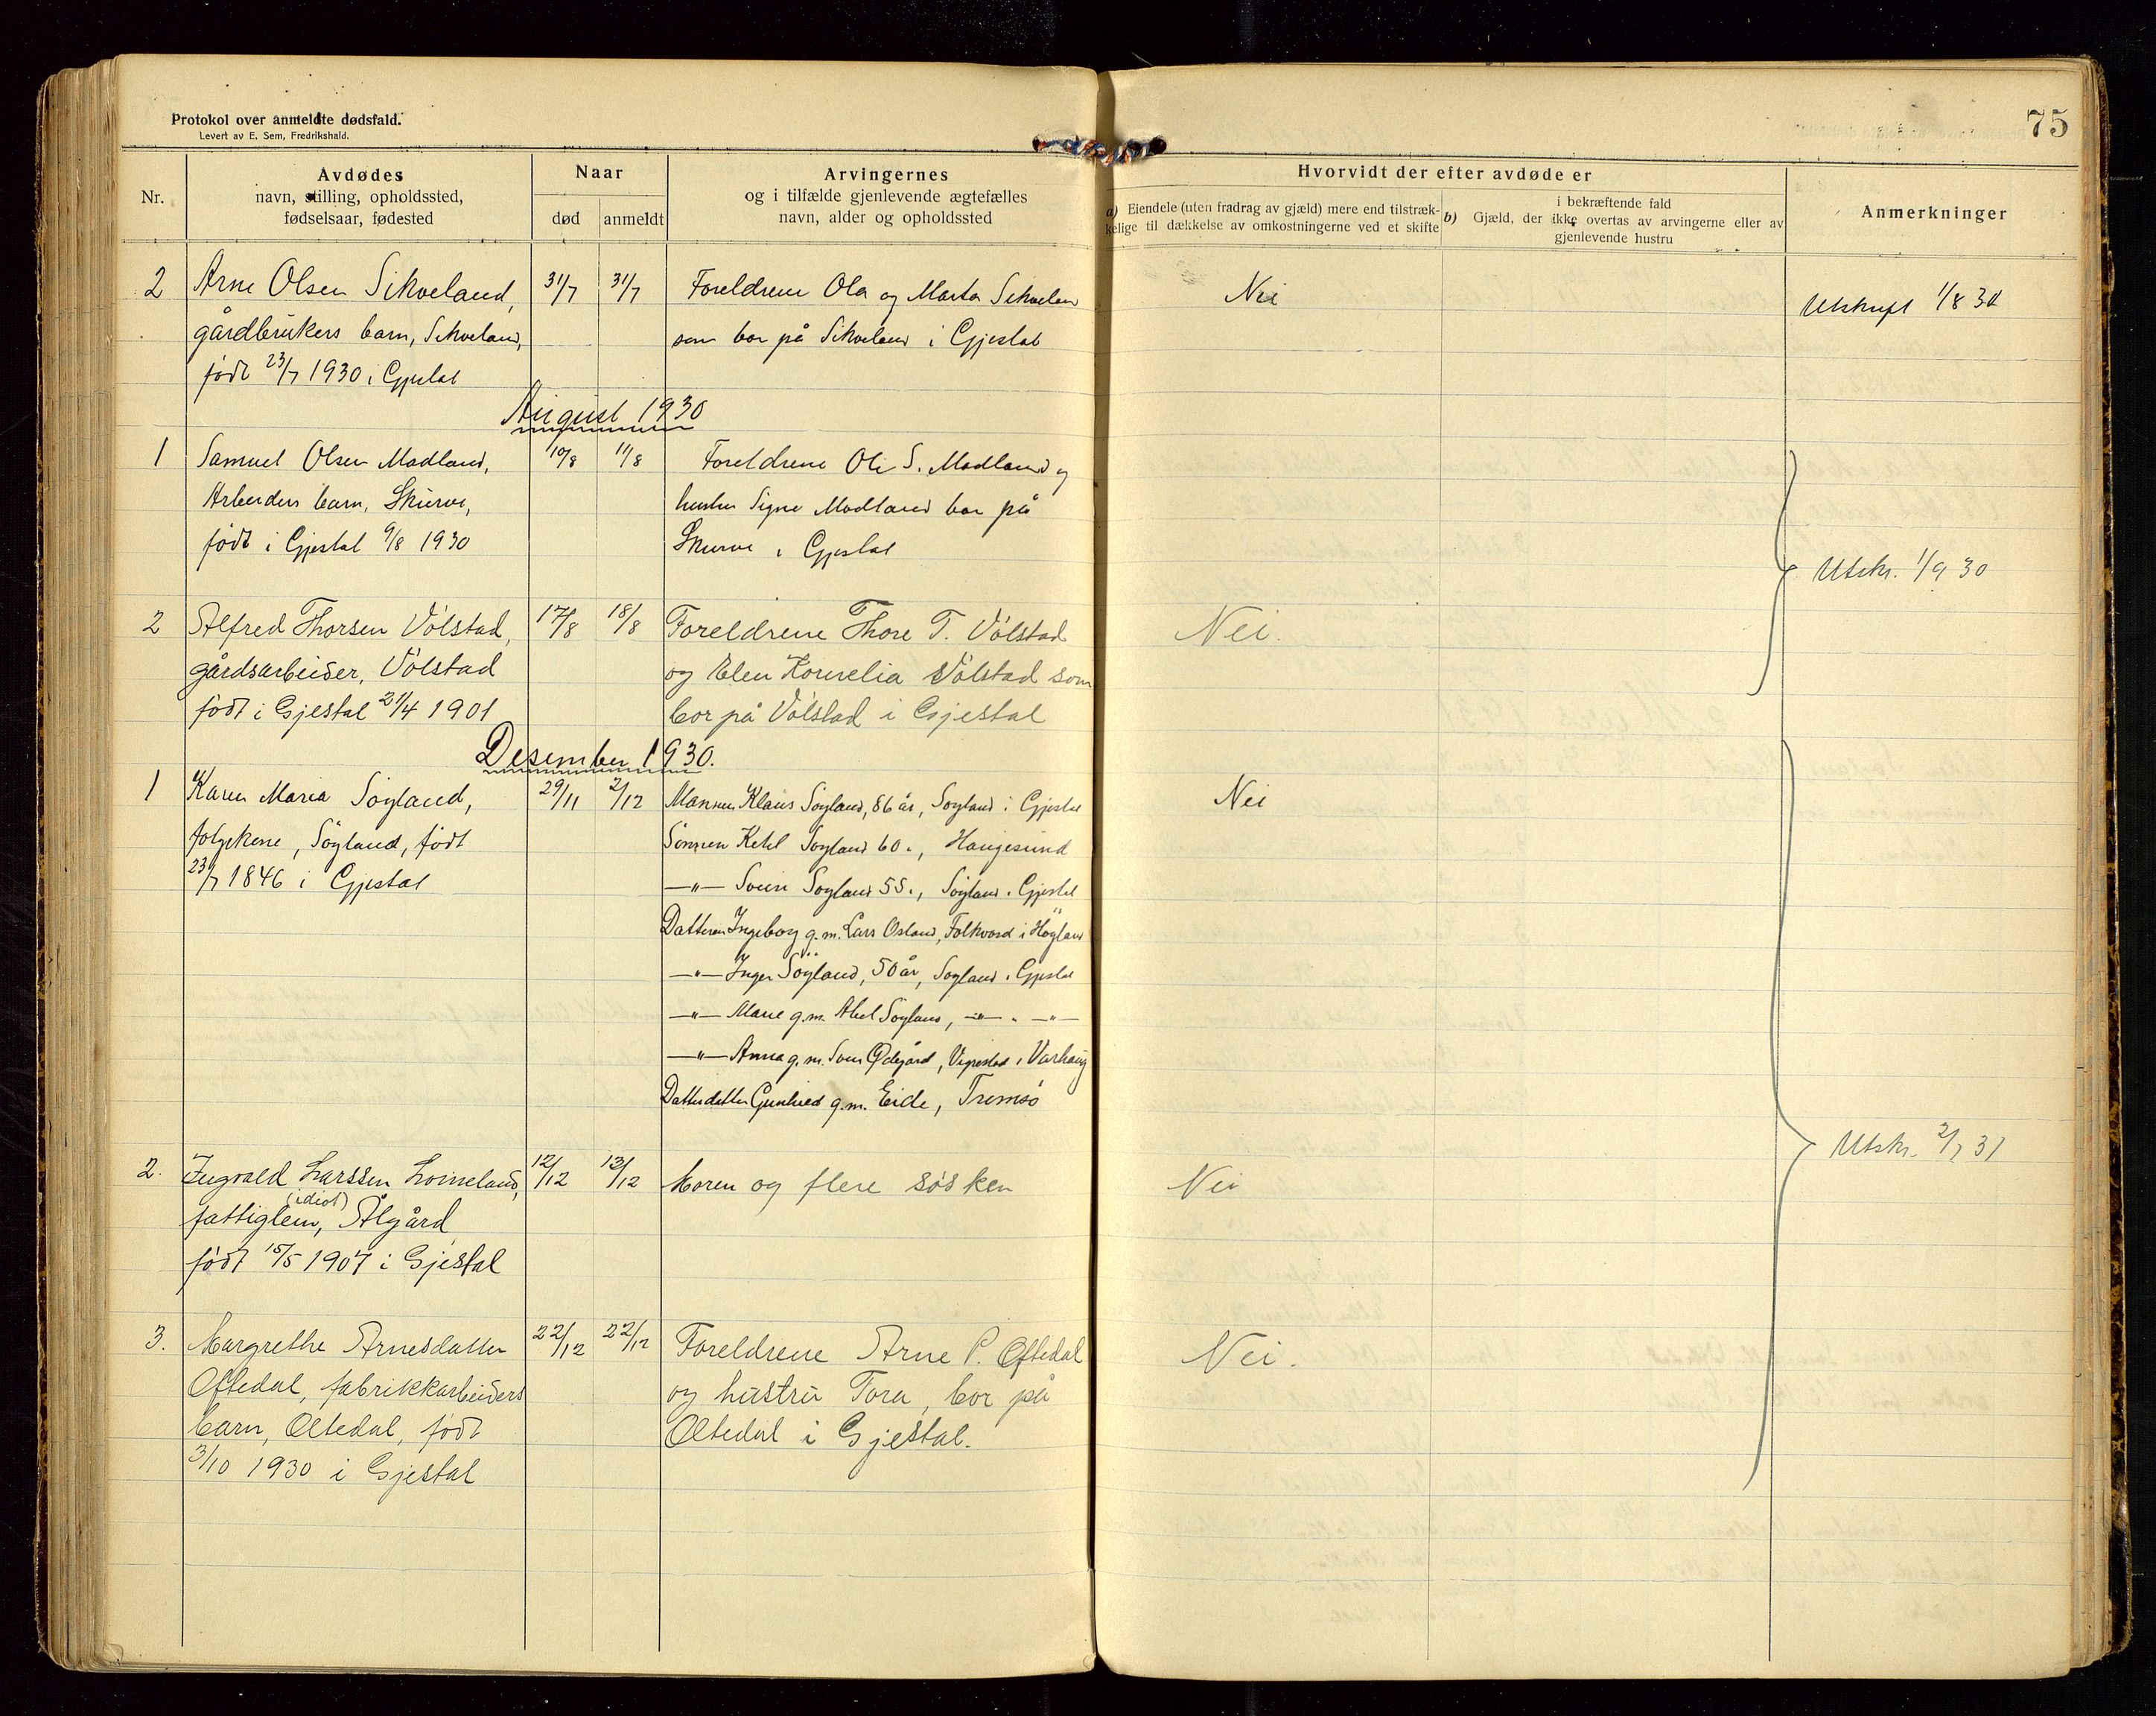 Protokol over anmeldte dødsfald.
Levert av E. Sem, Fredrikshald.
75
Nr.
Avdødes
navn, stilling, opholdssted,
fødselsaar, fødested
Naar
død
anmeldt
Arvingernes
og i tilfælde gjenlevende ægtefælles
navn, alder og opholdssted
Hvorvidt der efter avdøde er
a) Eiendele (uten fradrag av gjæld) mere end tilstræk-
kelige til dækkelse av omkostningerne ved et skifte
i bekræftende fald
b) Gjæld, der ikke overtas av arvingerne eller av
gjenlevende hustru
Anmerkninger
2 Arne Olsen Sikveland, 31/7 31/7 Foreldrene Ola og Marta Sikveland Nei Utskrift 1/8 30
gårdbrukers barn, Sikveland, som bor på Sikveland i Gjestal
født 23/7 1930 i Gjestal
August 1930
1 Samuel Olsen Modland, 10/8 11/8 Foreldrene Ole S. Modland og
Arbeiders barn, Skurve, hustru Signe Modland bor på
født i Gjestal 9/8 1930 Skurve i Gjestal
Utskr. 1/9 30
2 Alfred Thorsen Völstad, 17/8 18/8 Foreldrene Thore T. Völstad Nei.
gårdsarbeider, Völstad og Elen Kornelia Völstad som
født i Gjestal 21/4 1901 bor på Völstad i Gjestal
Desember 1930.
1 Karen Maria Söyland, 29/11 2/12 Mannen Klaus Söyland, 86 år, Soyland i Gjestal Nei
folgekone, Söyland, født Sönnen Ketil Soyland 60 ", Haugesund
23/7 1846 i Gjestal —"— Svein Soyland 55 ", Söyland i Gjestal
Datteren Ingeborg g.m. Lars Osland, Folkvord i Höyland
—"— Inger Söyland, 50 år, Soyland i Gjestal
—"— Marie g.m. Abel Söyland, —"— " —"—
—"— Anna g.m. Ödegård, i Varhaug
Datterdatter g.m. Eide, Tromsö
Utskr. 2/1 31
2. Ingvald Larssen 12/12 13/12 Moren og flere sösken Nei
(idiot)
fattiglem, Ålgård
født 15/5 1907 i Gjestal
3. Margrethe Arnesdatter 22/12 22/12 Foreldrene Arne P. Oftedal Nei.
Oftedal, fabrikkarbeiders og hustru Tora, bor på
barn, Oltedal, født Oltedal i Gjestal.
3/10 1930 i Gjestal